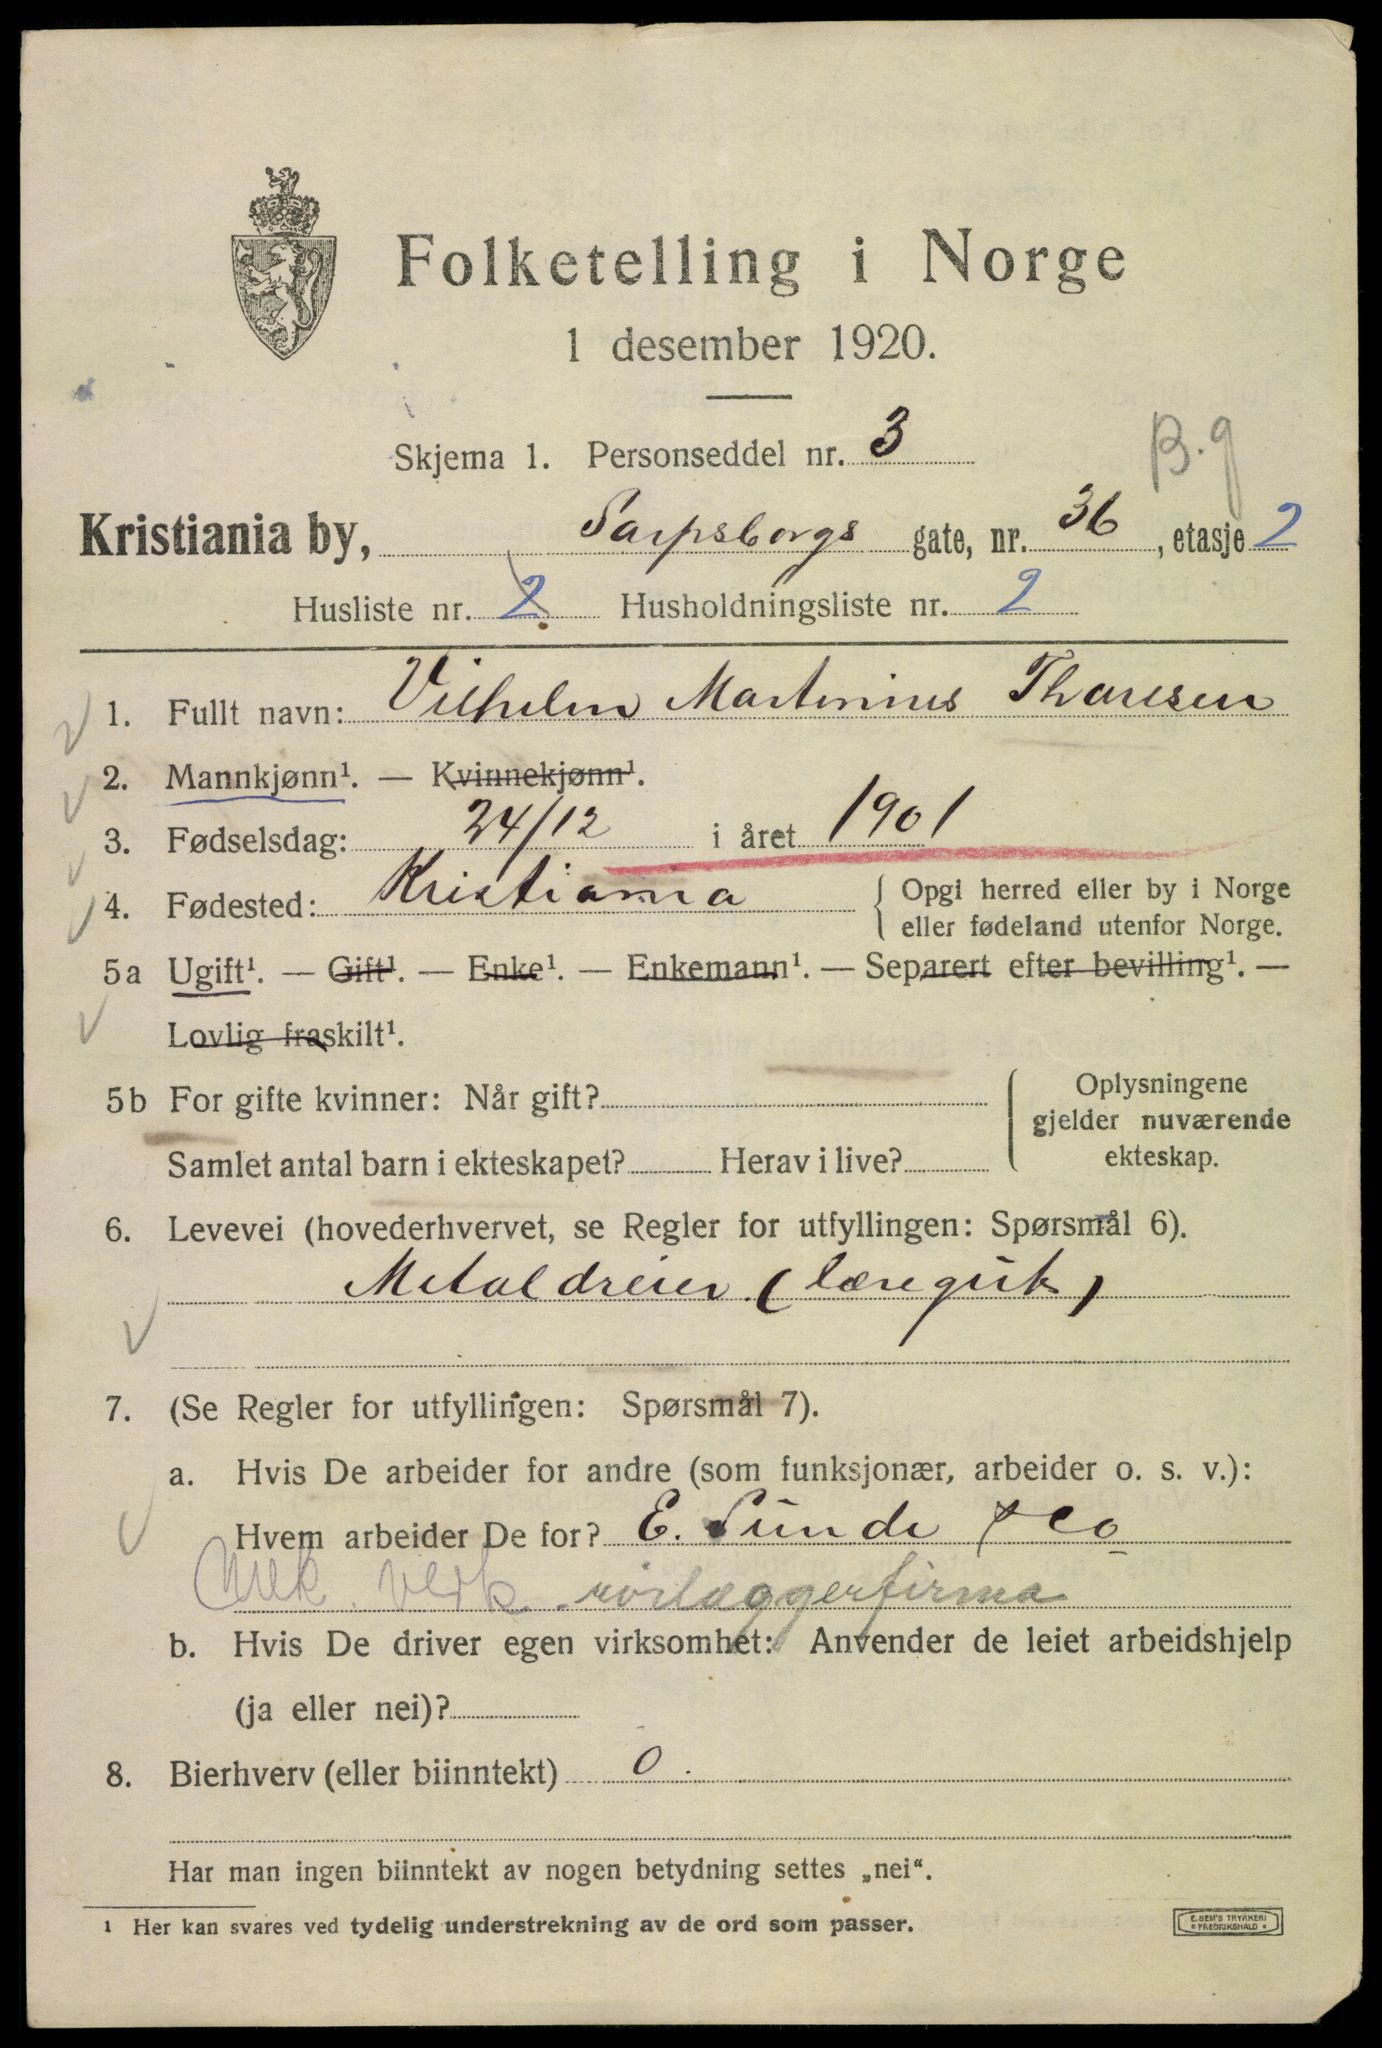 Folketelling i Norge
1 desember 1920.
Skjema 1. Personseddel nr. 3
B.g
Kristiania by, Sarpsborgs gate, nr. 36, etasje 2
Husliste nr. 2 Husholdningsliste nr. 2
1. Fullt navn: Vilhelm Martinius Thoresen
2. Mannkjønn¹. — Kvinnekjønn¹.
3. Fødselsdag: 24/12 i året 1901
4. Fødested: Kristiania { Opgi herred eller by i Norge
eller fødeland utenfor Norge.
5a Ugift¹. — Gift¹. — Enke¹. — Enkemann¹. — Separert efter bevilling¹. —
Lovlig fraskilt¹.
5b For gifte kvinner: Når gift?
Samlet antal barn i ekteskapet? Herav i live?
Oplysningene
gjelder nuværende
ekteskap.
6. Levevei (hovederhvervet, se Regler for utfyllingen: Spørsmål 6).
Metaldreier (læregut)
7. (Se Regler for utfyllingen: Spørsmål 7).
a. Hvis De arbeider for andre (som funksjonær, arbeider o. s. v.):
Hvem arbeider De for? E. Sunde & Co
Mek. verk. rørlæggerfirma
b. Hvis De driver egen virksomhet: Anvender de leiet arbeidshjelp
(ja eller nei)?
8. Bierhverv (eller biinntekt) 0.
Har man ingen biinntekt av nogen betydning settes „nei“.
¹ Her kan svares ved tydelig understrekning av de ord som passer.
E. SEM'S TRYKKERI
FREDRIKSHALD